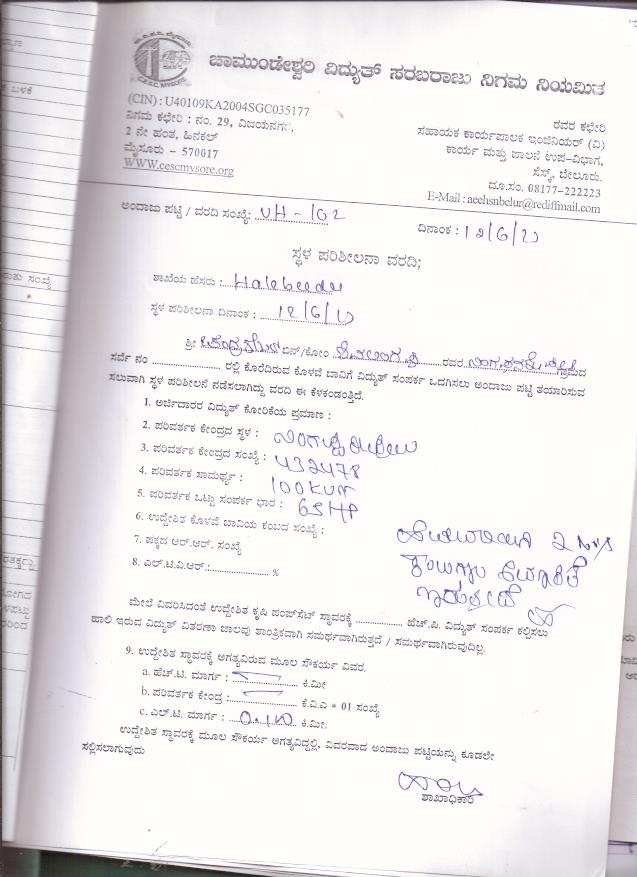 ಚಾಮುಂಡೇಶ್ವರಿ ವಿದ್ಯುತ್ ಸರಬರಾಜು ನಿಗಮ ನಿಯಮಿತ
(CIN) : U40109KA2004SGC035177
ನಿಗಮ ಕಛೇರಿ : ನಂ. 29, ವಿಜಯನಗರ,
2 ನೇ ಹಂತ, ಹಿನಕಲ್
ಮೈಸೂರು – 570017
WWW.cescmysore.org
ರವರ ಕಛೇರಿ
ಸಹಾಯಕ ಕಾರ್ಯಪಾಲಕ ಇಂಜಿನಿಯರ್ (ವಿ)
ಕಾರ್ಯ ಮತ್ತು ಪಾಲನೆ ಉಪ-ವಿಭಾಗ,
ಸೆಸ್ಕ್, ಬೇಲೂರು.
ದೂ.ಸಂ. 08177-222223
E-Mail : aeehsnbelur@rediffmail.com
ಅಂದಾಜು ಪಟ್ಟಿ / ವರದಿ ಸಂಖ್ಯೆ:
ದಿನಾಂಕ : 12/6/
ಸ್ಥಳ ಪರಿಶೀಲನಾ ವರದಿ;
ಶಾಖೆಯ ಹೆಸರು : Halebeedu
ಸ್ಥಳ ಪರಿಶೀಲನಾ ದಿನಾಂಕ : 12/6/
ಶ್ರೀ ಬಿನ್/ಕೋಂ ರವರ ಗ್ರಾಮದ
ಸರ್ವೆ ನಂ .................... ರಲ್ಲಿ ಕೊರೆದಿರುವ ಕೊಳವೆ ಬಾವಿಗೆ ವಿದ್ಯುತ್ ಸಂಪರ್ಕ ಒದಗಿಸಲು ಅಂದಾಜು ಪಟ್ಟಿ ತಯಾರಿಸುವ
ಸಲುವಾಗಿ ಸ್ಥಳ ಪರಿಶೀಲನೆ ನಡೆಸಲಾಗಿದ್ದು ವರದಿ ಈ ಕೆಳಕಂಡಂತಿದೆ.
1. ಅರ್ಜಿದಾರರ ವಿದ್ಯುತ್ ಕೋರಿಕೆಯ ಪ್ರಮಾಣ :
2. ಪರಿವರ್ತಕ ಕೇಂದ್ರದ ಸ್ಥಳ :
3. ಪರಿವರ್ತಕ ಕೇಂದ್ರದ ಸಂಖ್ಯೆ : 432478
4. ಪರಿವರ್ತಕ ಸಾಮರ್ಥ್ಯ : 100KVA
5. ಪರಿವರ್ತಕ ಒಟ್ಟು ಸಂಪರ್ಕ ಭಾರ : 65HP
6. ಉದ್ದೇಶಿತ ಕೊಳವೆ ಬಾವಿಯ ಕಂಬದ ಸಂಖ್ಯೆ :
7. ಪಕ್ಕದ ಆರ್.ಆರ್. ಸಂಖ್ಯೆ
8. ಎಲ್.ಟಿ.ವಿ.ಆರ್.:................ %
ಮೇಲೆ ವಿವರಿಸಿದಂತೆ ಉದ್ದೇಶಿತ ಕೃಷಿ ಪಂಪ್‌ಸೆಟ್ ಸ್ಥಾವರಕ್ಕೆ .................. ಹೆಚ್.ಪಿ. ವಿದ್ಯುತ್ ಸಂಪರ್ಕ ಕಲ್ಪಿಸಲು
ಹಾಲಿ ಇರುವ ವಿದ್ಯುತ್ ವಿತರಣಾ ಜಾಲವು ತಾಂತ್ರಿಕವಾಗಿ ಸಮರ್ಥವಾಗಿರುತ್ತದೆ / ಸಮರ್ಥವಾಗಿರುವುದಿಲ್ಲ.
9. ಉದ್ದೇಶಿತ ಸ್ಥಾವರಕ್ಕೆ ಅಗತ್ಯವಿರುವ ಮೂಲ ಸೌಕರ್ಯ ವಿವರ.
a. ಹೆಚ್.ಟಿ. ಮಾರ್ಗ : .................. ಕಿ.ಮೀ
b. ಪರಿವರ್ತಕ ಕೇಂದ್ರ : .................. ಕೆ.ವಿ.ಎ * 01 ಸಂಖ್ಯೆ
c. ಎಲ್.ಟಿ. ಮಾರ್ಗ : ಕಿ.ಮೀ.
ಉದ್ದೇಶಿತ ಸ್ಥಾವರಕ್ಕೆ ಮೂಲ ಸೌಕರ್ಯ ಅಗತ್ಯವಿದ್ದಲ್ಲಿ, ವಿವರವಾದ ಅಂದಾಜು ಪಟ್ಟಿಯನ್ನು ಕೂಡಲೇ
ಸಲ್ಲಿಸಲಾಗುವುದು
ಶಾಖಾಧಿಕಾರಿ